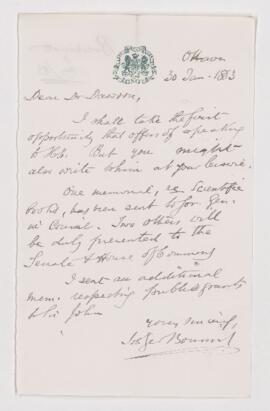 Ottawa
30 Jan. 1883
Dear Dr Dawson,
I shall take the first
opportunity that offers of speaking
to H.E. But you might
also write to him at your leisure.
One memorial, re Scientific
books, has been sent to Gov. Gen.
in Council. Two others will
be duly presented to the
Senate & House of Commons
I sent an additional
mem. respecting public grants
to Sir John
Yours sincerely,